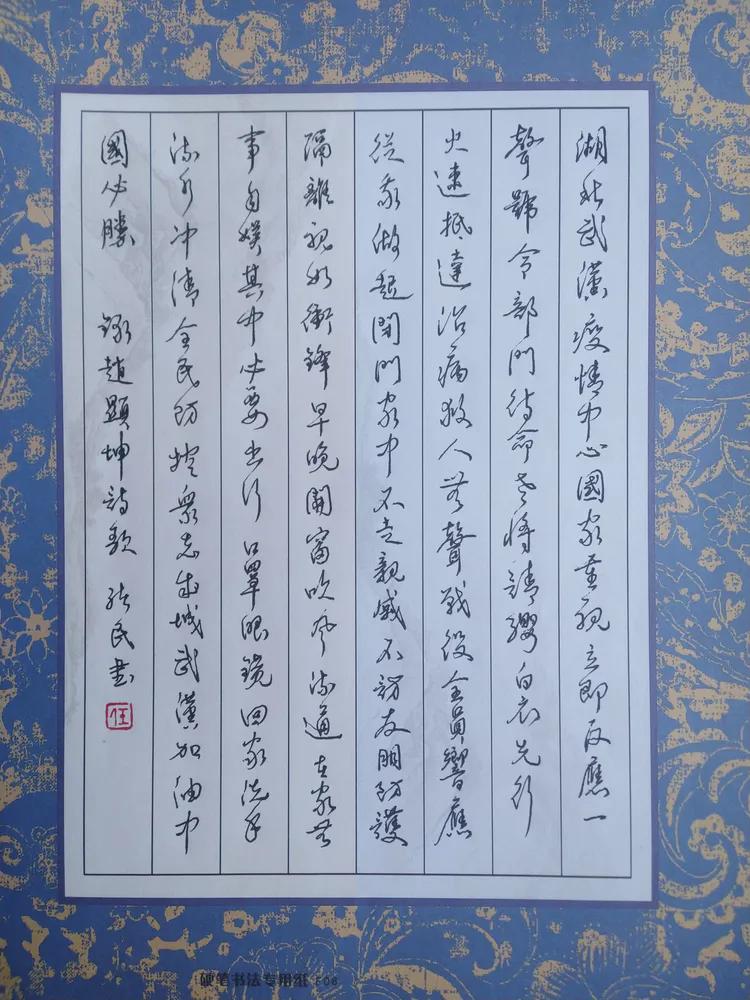 湖北武漢疫情中心國家重視立即反應一
聲號令部門待命老將請纓白衣先行
火速抵達治病救人無聲戰役全員響應
從我做起閉門家中不走親戚不訪友朋防護
隔離視如衝鋒早晚開窗吹風流通在家無
事自娛其中必要出行口罩眼鏡回家洗手
流水冲清全民防控衆志成城武漢加油中
國必勝 錄趙顯坤詩歌 張民書
硬笔书法专用纸